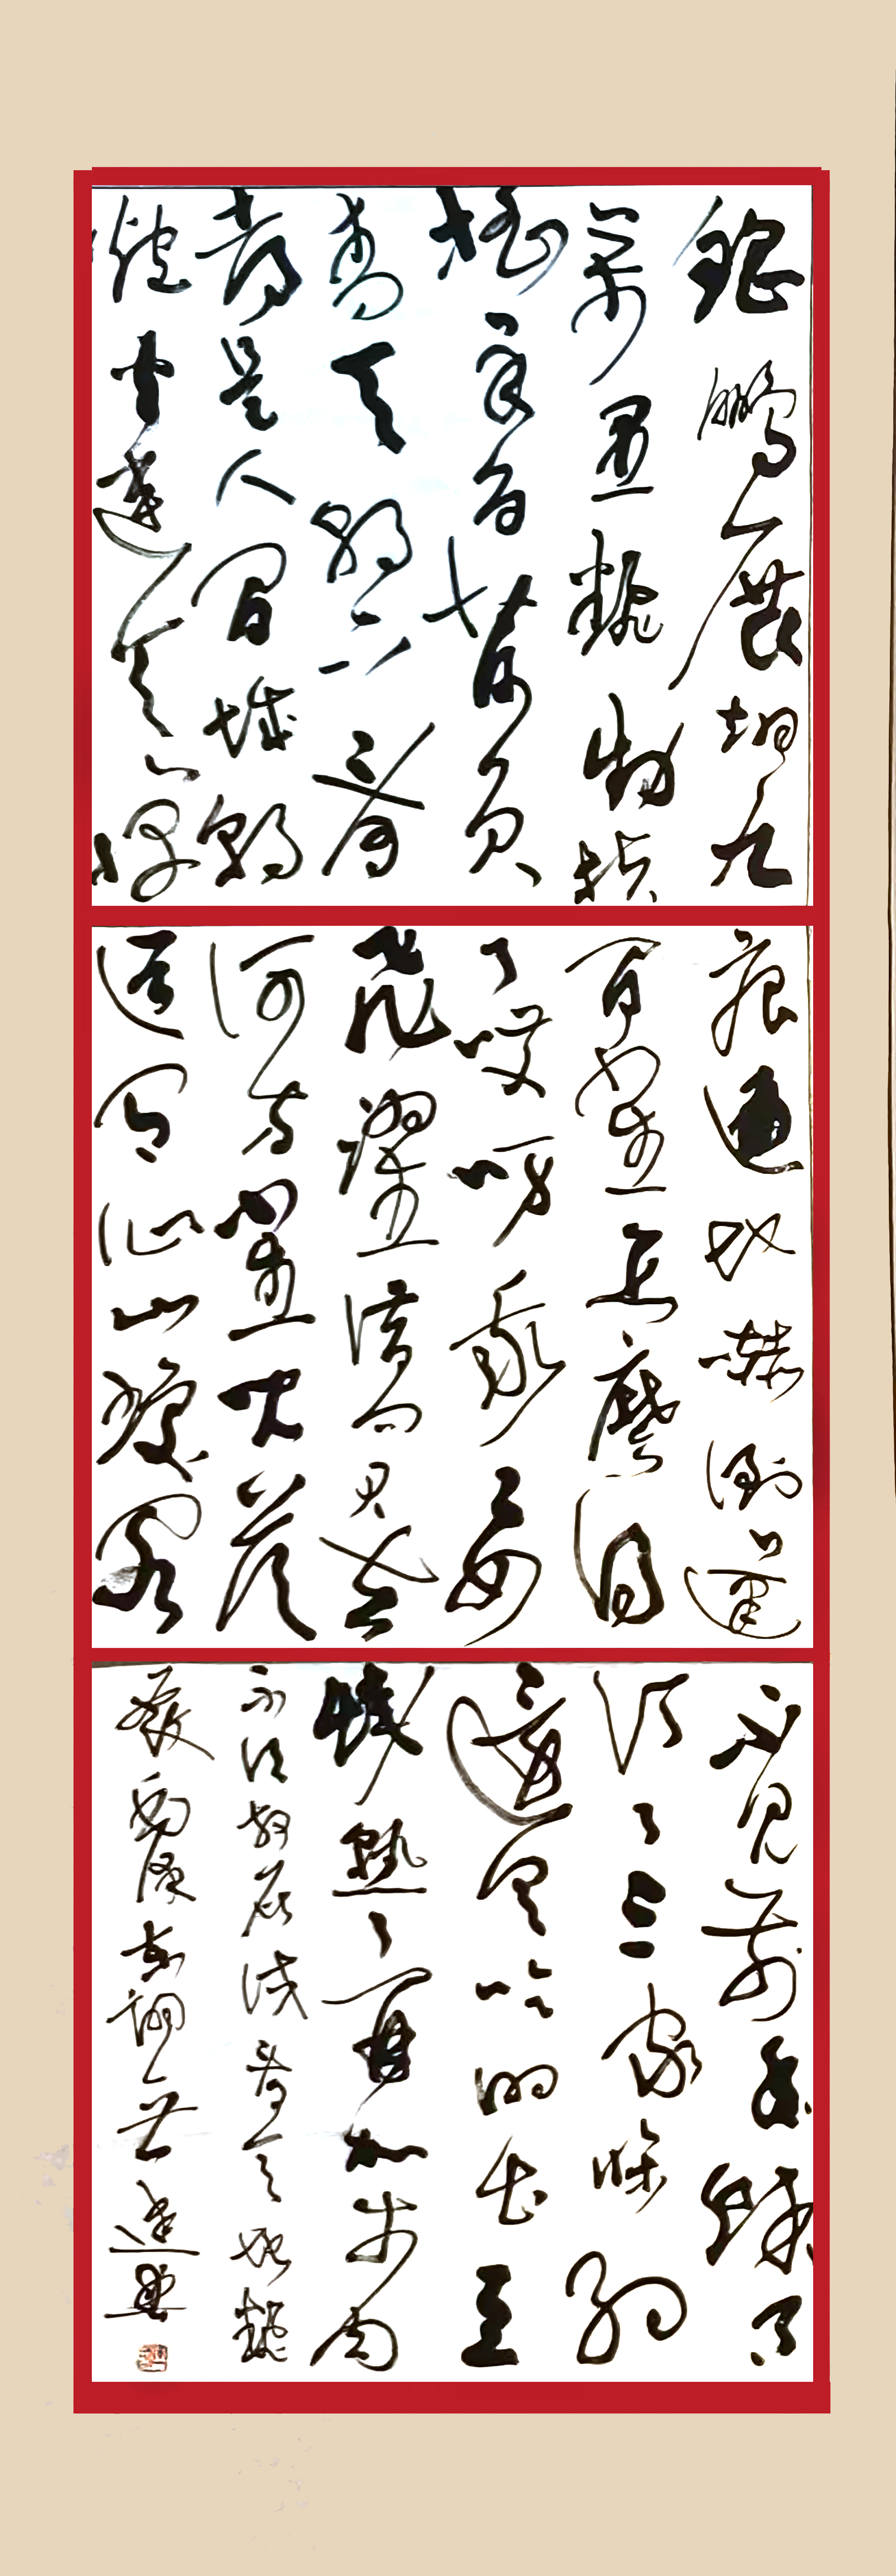 鲲鹏展翅九
万里翻动扶
摇羊角背负
青天朝下看
都是人间城郭
炮火连天弹
痕遍地吓倒蓬
间雀怎么得
了哎呀我要
飞跃借问君去
何方雀儿答
道有仙山琼阁
不见前年秋月
订了三家条约
还有吃的土豆
烧熟了再加牛肉
不须放屁试看天地翻
覆